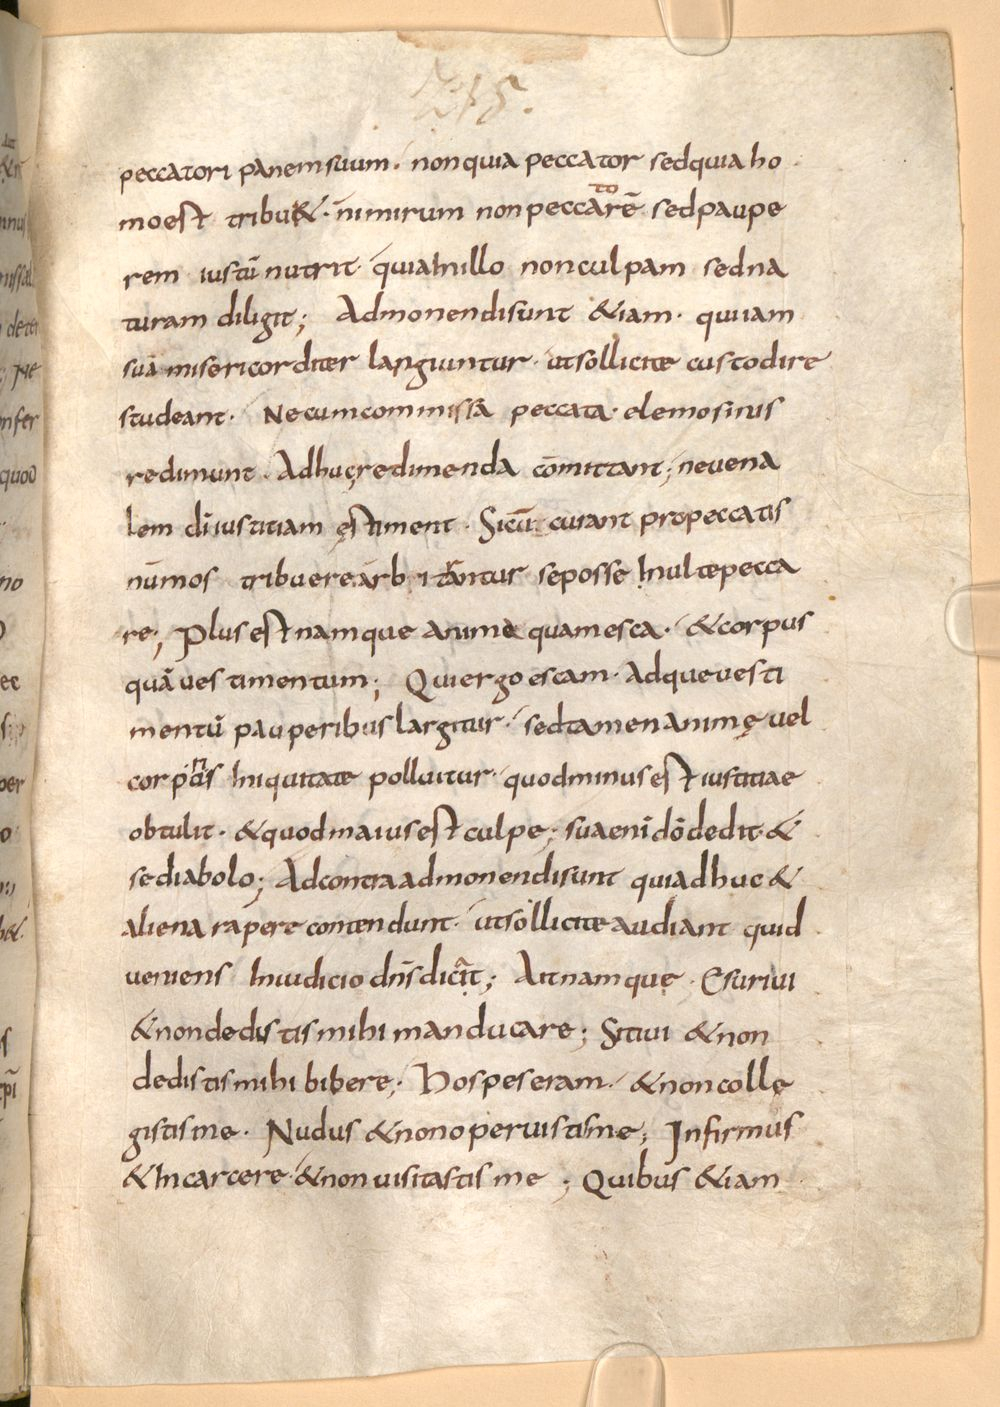 215.
peccatori panem suum· non quia peccator sed quia ho
mo est tribu&· nimirum non peccatorē sed paupe
rem iustū nutrit· quia In illo non culpam sed na
turam diligit; Admonendi sunt &iam· qui iam
suā misericorditer largiuntur· ut sollicite custodire
studeant· Ne cum commissa peccata· elemosinis
redimunt· Adhuc redimenda cōmittant; ne vena
lem dī iustitiam ęstiment· Si cū curant pro peccatis
nūmos tribuere arbitrantur se posse Inulte pecca
re; Plus est namque anima quam esca· & corpus
quā vestimentum; Qui ergo escam· Adque vesti
mentū pauperibus largitur· sed tamen animę vel
corporis Iniquitate polluitur· quod minus est iustitiae
obtulit· & quod maius est culpe; sua enī dō dedit· &
se diabolo; Ad contra admonendi sunt qui adhuc &
aliena rapere contendunt· ut sollicite audiant quid
veniens In iudicio dn̄s dicat; Ait namque· Esurivi
& non dedistis mihi manducare; Sitivi & non
dedistis mihi bibere; Hospes eram· & non collę
gistis me· Nudus & non operuistis me; Infirmus
& In carcere· & non visitastis me; Quibus &iam